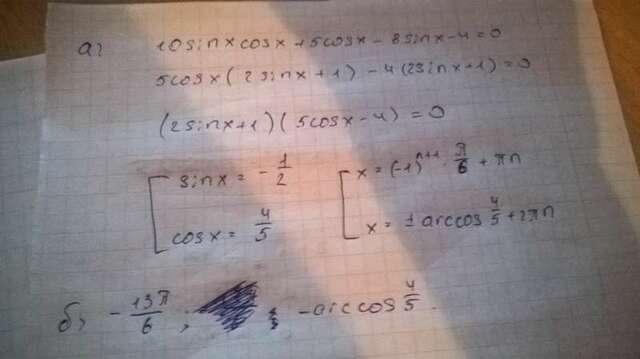 а) 10sinxcosx+5cosx-8sinx-4=0
5cosx(2sinx+1)-4(2sinx+1)=0
(2sinx+1)(5cosx-4)=0
[ sinx = -1/2 [ x = (-1)^{n+1} · π/6 + πn
cosx = 4/5 x = ± arccos 4/5 + 2πn
б) -13π/6 ; ; -arccos 4/5.